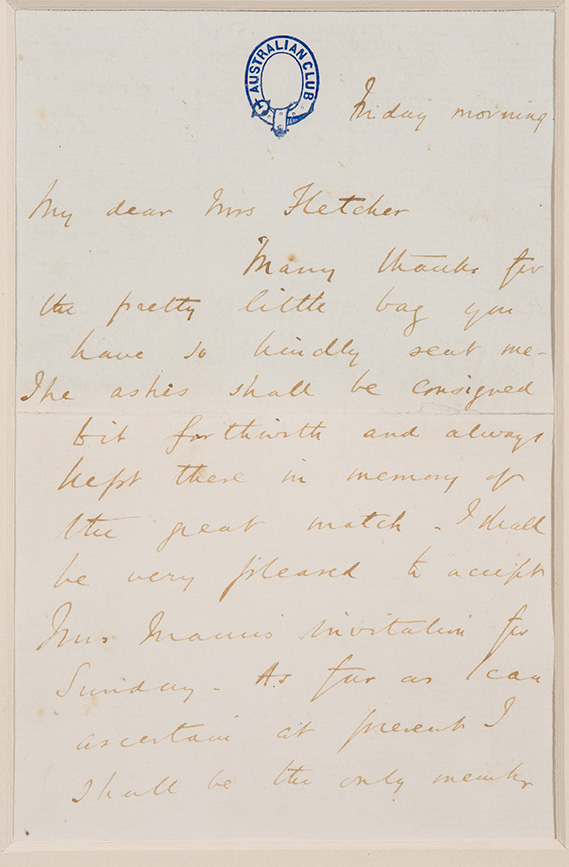 AUSTRALIAN CLUB
Friday morning.
My dear Mrs Fletcher
Many thanks for
the pretty little bag you
have so kindly sent me -
The ashes shall be consigned
to it forthwith and always
kept there in memory of
the great match - I shall
be very pleased to accept
Mrs invitation for
Sunday - As far as I can
ascertain at present I
shall be the only member